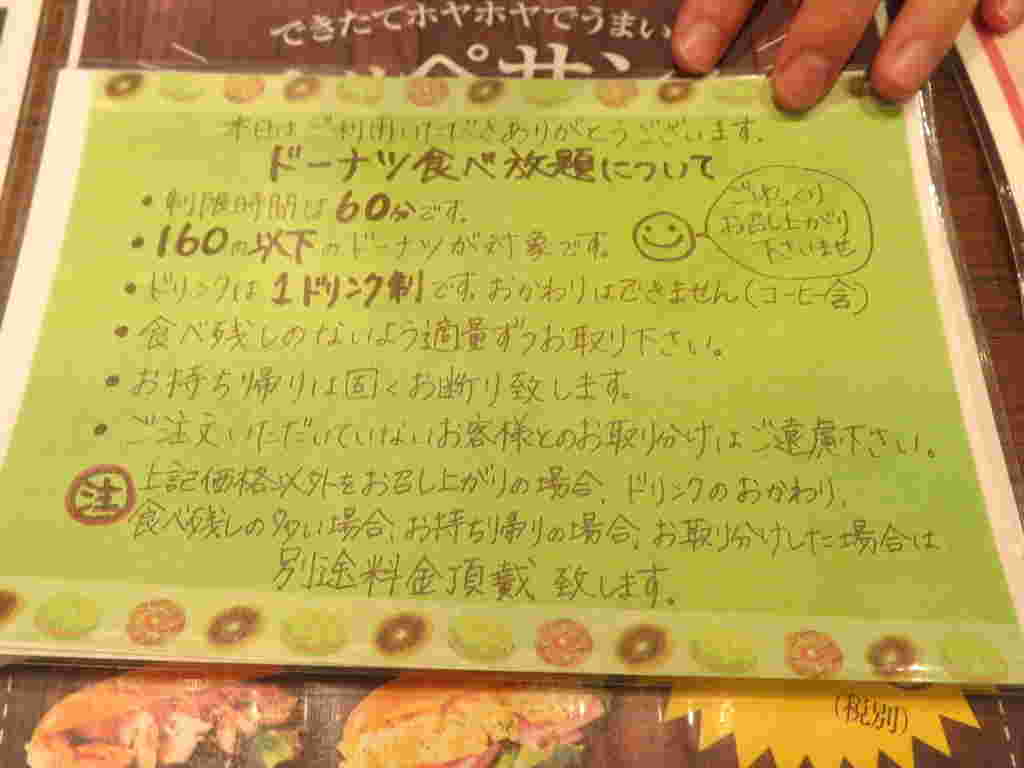 できたてホヤホヤでうまい
ペサン
本日はご利用いただきありがとうございます。
ドーナツ食べ放題について
・制限時間は60分です。
・160円以下のドーナツが対象です。
ごゆっくり
お召し上がり
下さいませ
・ドリンクは1ドリンク制です。おかわりはできません(コーヒー含)
・食べ残しのないよう適量ずつお取り下さい。
・お持ち帰りは固くお断り致します。
・ご注文いただいていないお客様とのお取り分けはご遠慮下さい。
注 上記価格以外をお召し上がりの場合、ドリンクのおかわり、
食べ残しの多い場合、お持ち帰りの場合、お取り分けした場合は
別途料金頂戴致します。
(税別)